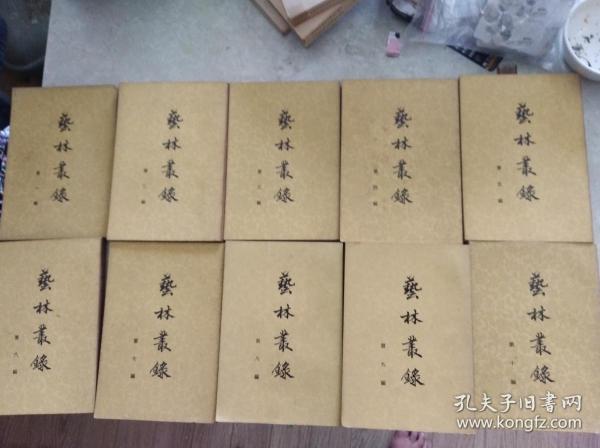 藝林叢錄
第一編
藝林叢錄
第二編
藝林叢錄
第三編
藝林叢錄
第四編
藝林叢錄
第五編
藝林叢錄
第六編
藝林叢錄
第七編
藝林叢錄
第八編
藝林叢錄
第九編
藝林叢錄
第十編
孔夫子旧书网
www.kongfz.com